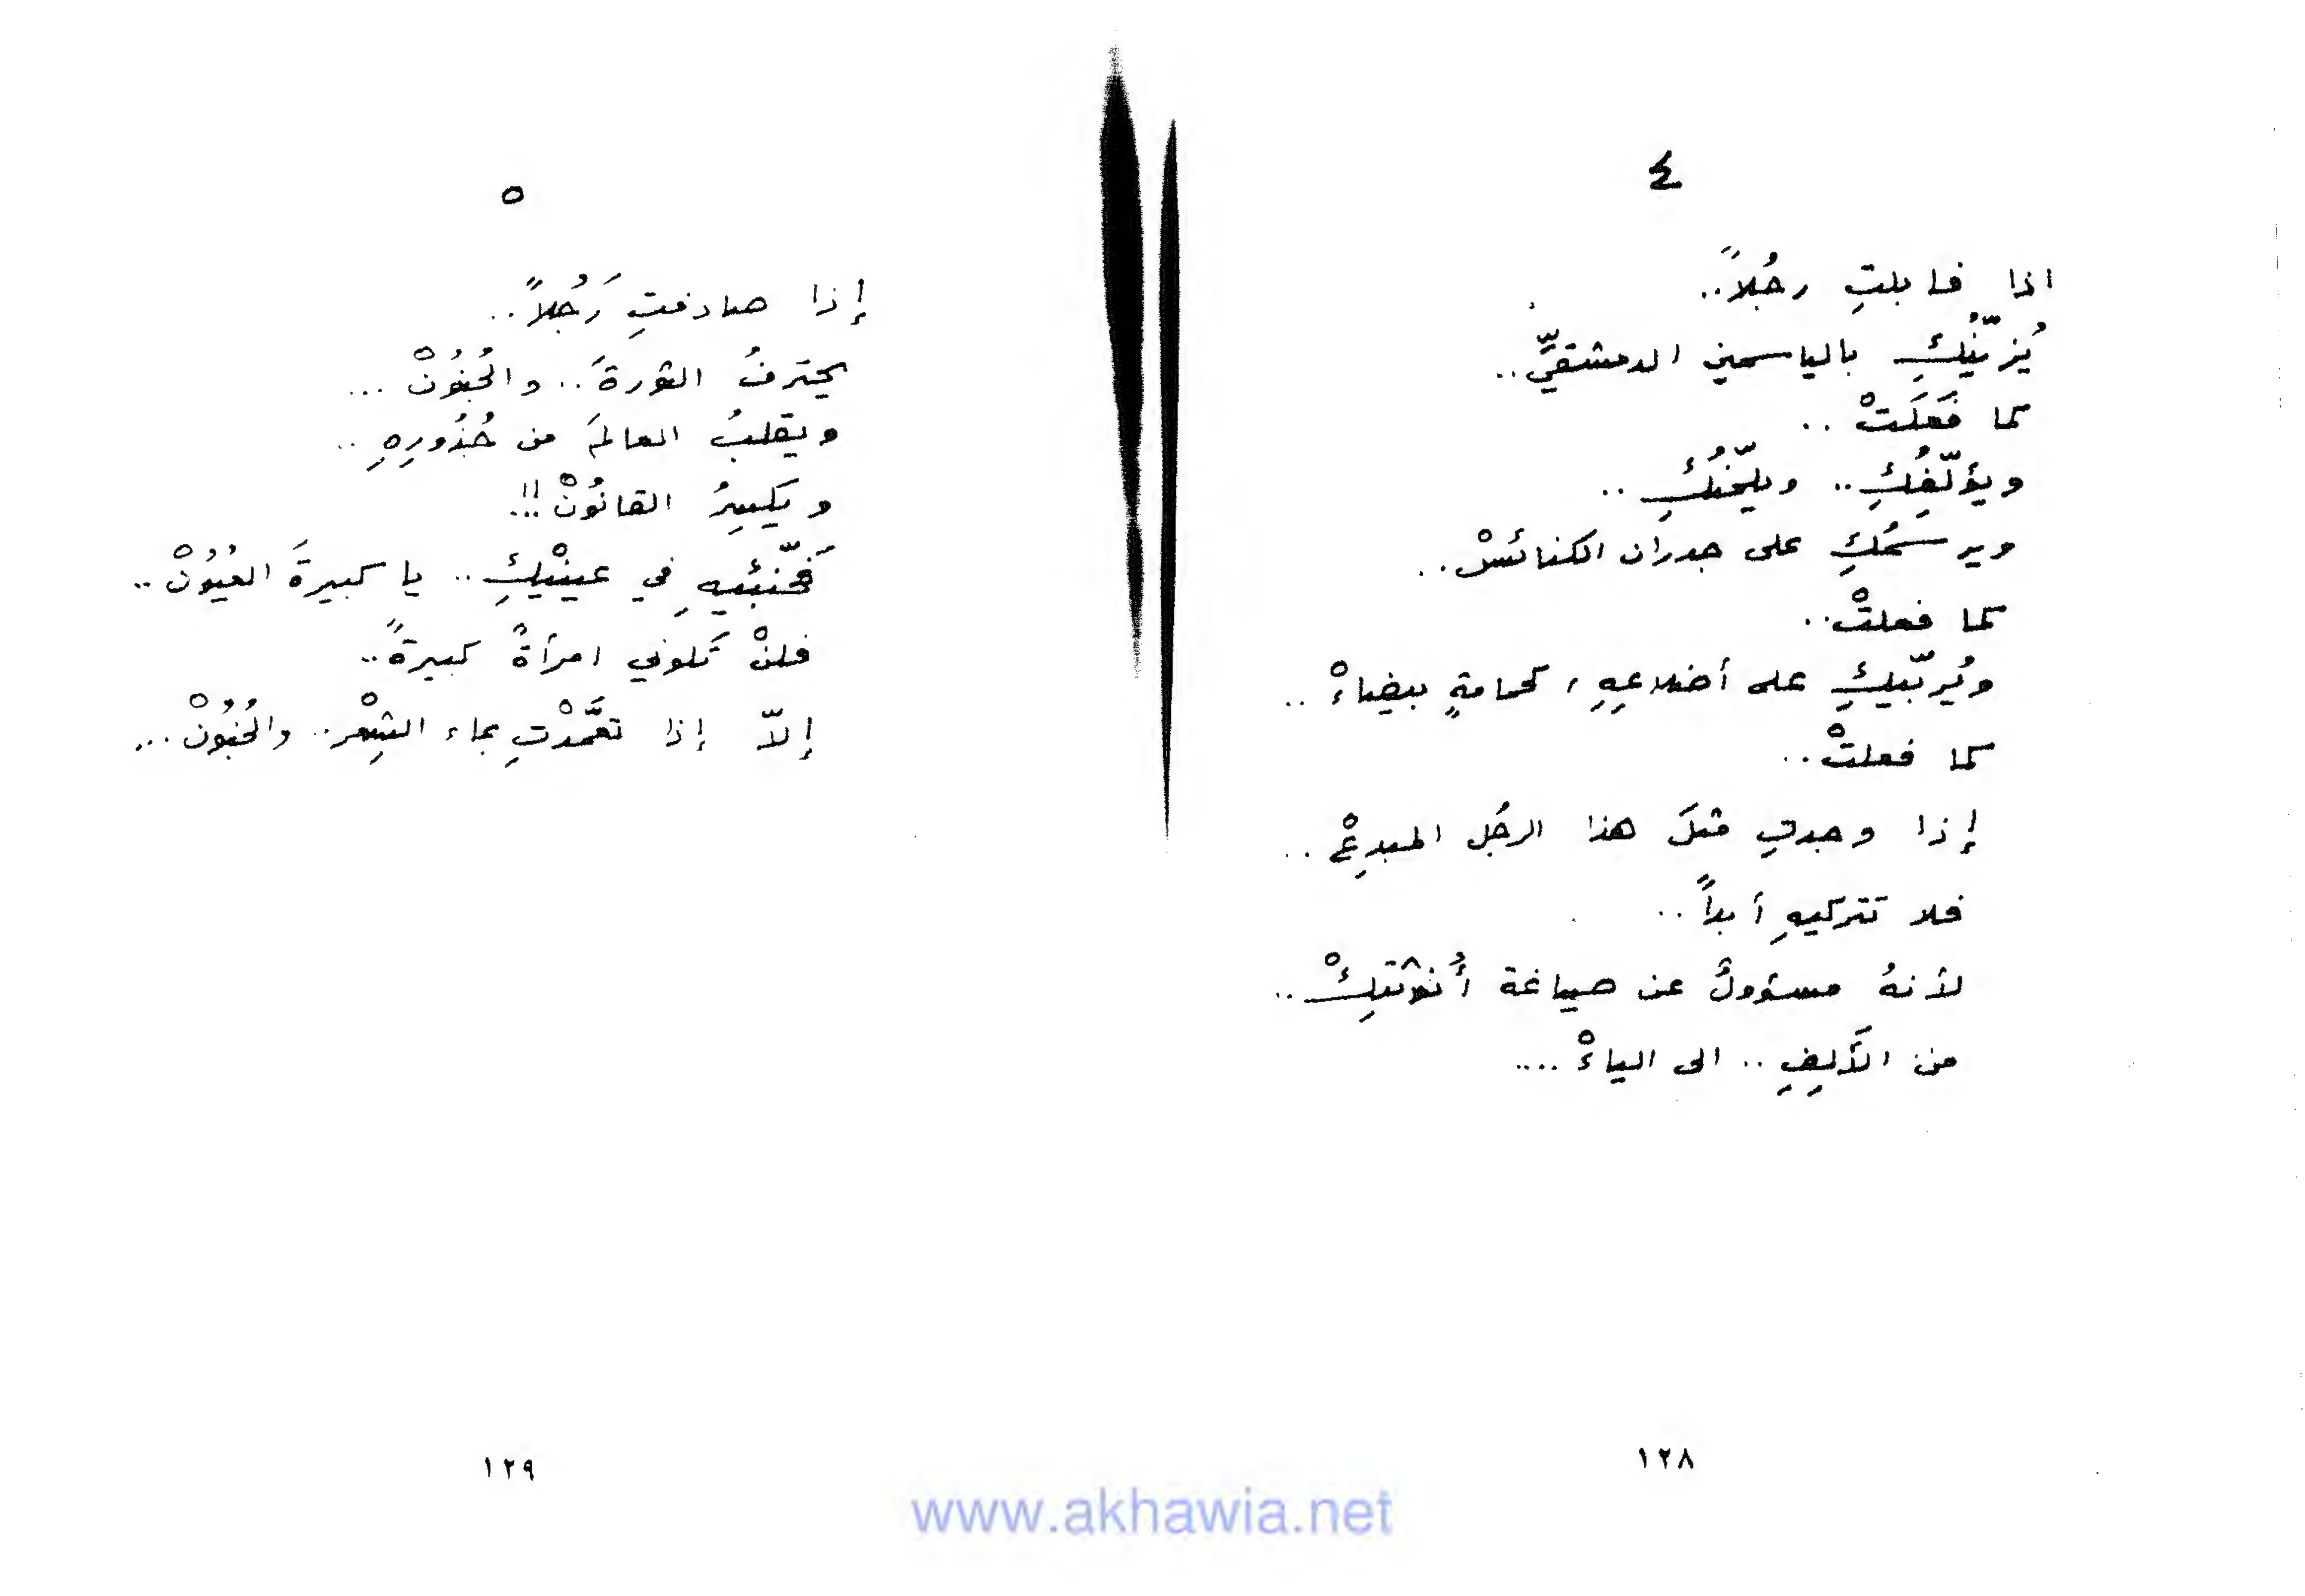 ٤
اذا قابلتِ رجُلاً..
يُزيّنُكِ بالياسمين الدمشقيِّ..
كما فَعَلَتْ ..
ويؤلّفُكِ.. ويلحّنُكِ ..
ويرسَمُكِ على جدران الكنائسْ..
كما فعلتْ..
ويُربّيكِ على أضلاعِهِ، كحمامةٍ بيضاءْ ..
كما فعلتْ..
إذا وجدتِ مثلَ هذا الرجُل المبدِعْ ..
فلا تتركيهِ أبداً ..
لأنهُ مسؤولٌ عن صياغة أُنوثتِكْ ..
من الأَلِفِ .. الى الياءْ ....
١٢٨
٥
إذا صادفتِ رَجُلاً ..
يحترفُ الثورةَ .. والجُنُونْ ...
ويقلبُ العالمَ من جُذُورِهِ ..
ويكسِرُ القانُونْ !!.
فَخبّئيهِ في عينيْكِ .. يا كبيرةَ العيُوُنْ ..
فلنْ تَكوني امرأةً كبيرةً ..
إلاّ إذا تعَمَّدْتِ بماء الشِعْر .. والجُنُونْ ...
١٢٩
www.akhawia.net